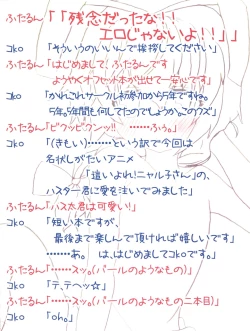 ふたるん「「残念だったな！！
エロじゃないよ！！」」
コko 「そういうのいいんで挨拶してください」
ふたるん「はじめまして、ふたるんです
ようやくオフセット本が出せて一安心です！！」
コko 「かれこれサークル初参加から5年ですね。
5年。5年間も何してたのでしょうか。このクズ」
ふたるん「ビクッビクンッ!! ……ふぅ。」
コko 「（きもい）……という訳で今回は
名状しがたいアニメ
「這いよれ！ニャル子さん」の、
ハスター君に愛を注いでみました」
ふたるん「ハス太君は可愛い！」
コko 「短い本ですが、
最後まで楽しんで頂ければ嬉しいです」
……あ。 は、はじめましてコkoです。」
ふたるん「……スッ。（バールのようなもの）」
コko 「テ、テヘッ☆」
ふたるん「……スッ。（バールのようなもの二本目）」
コko 「oh。」